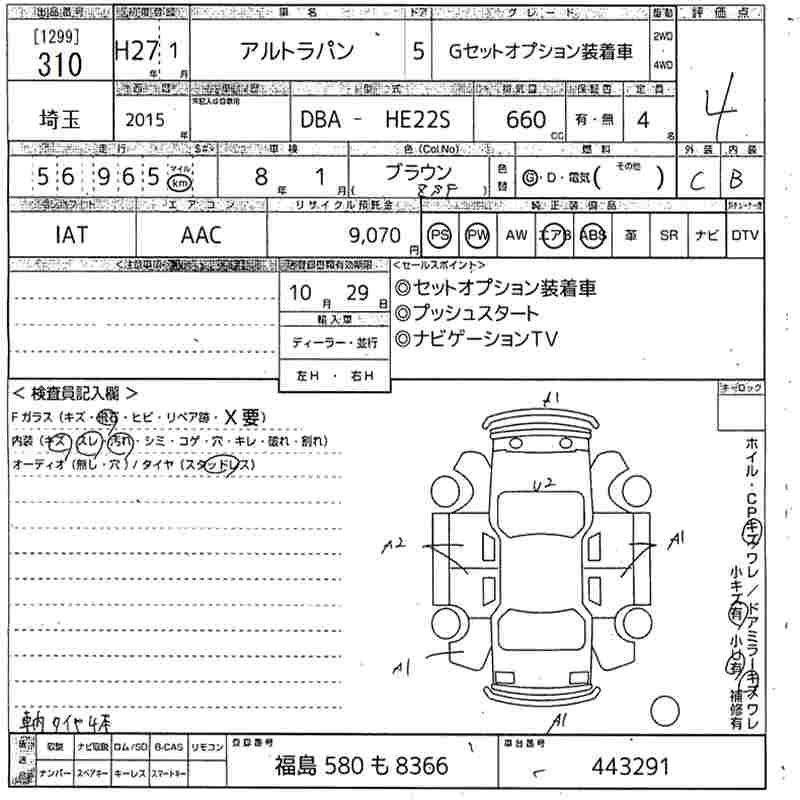 出品番号 初度登録 車名 ドア グレード 駆動 評価点
[1299]
310
H27年 1月 アルトラパン 5 Gセットオプション装着車 2WD・4WD 4
埼玉
2015年
型式
DBA - HE22S
排気量
660cc
保証書
有・無
定員
4名
走行 車検 色(Col.No) 燃料 外装 内装
56965 マイル km
8年 1月
ブラウン
(ZSP)
色替
G・D・電気(その他)
C B
シフト エアコン リサイクル預託金 純正装備品
IAT AAC 9,070円 PS PW AW エアB ABS 革 SR ナビ DTV
<注意事項
登録書類有効期限
10月 29日
輸入車
ディーラー・並行
左H・右H
<セールスポイント>
◎セットオプション装着車
◎プッシュスタート
◎ナビゲーションTV
<検査員記入欄>
Fガラス(キズ・飛石・ヒビ・リペア跡・X要)
内装(キズ・スレ・汚れ・シミ・コゲ・穴・キレ・破れ・割れ)
オーディオ(無し・穴)/タイヤ(スタッドレス)
車内タイヤ4本
キーロック
A1
U2
A2
A1
A1
A1
ホイル・CPキズワレ/ドアミラーキズワレ
小キズ有/小U有/補修有
後送品
取説 ナビ取説 ロム/SD B-CAS リモコン
ナンバー スペアキー キーレス スマートキー
登録番号
福島 580 も 8366
車台番号
443291